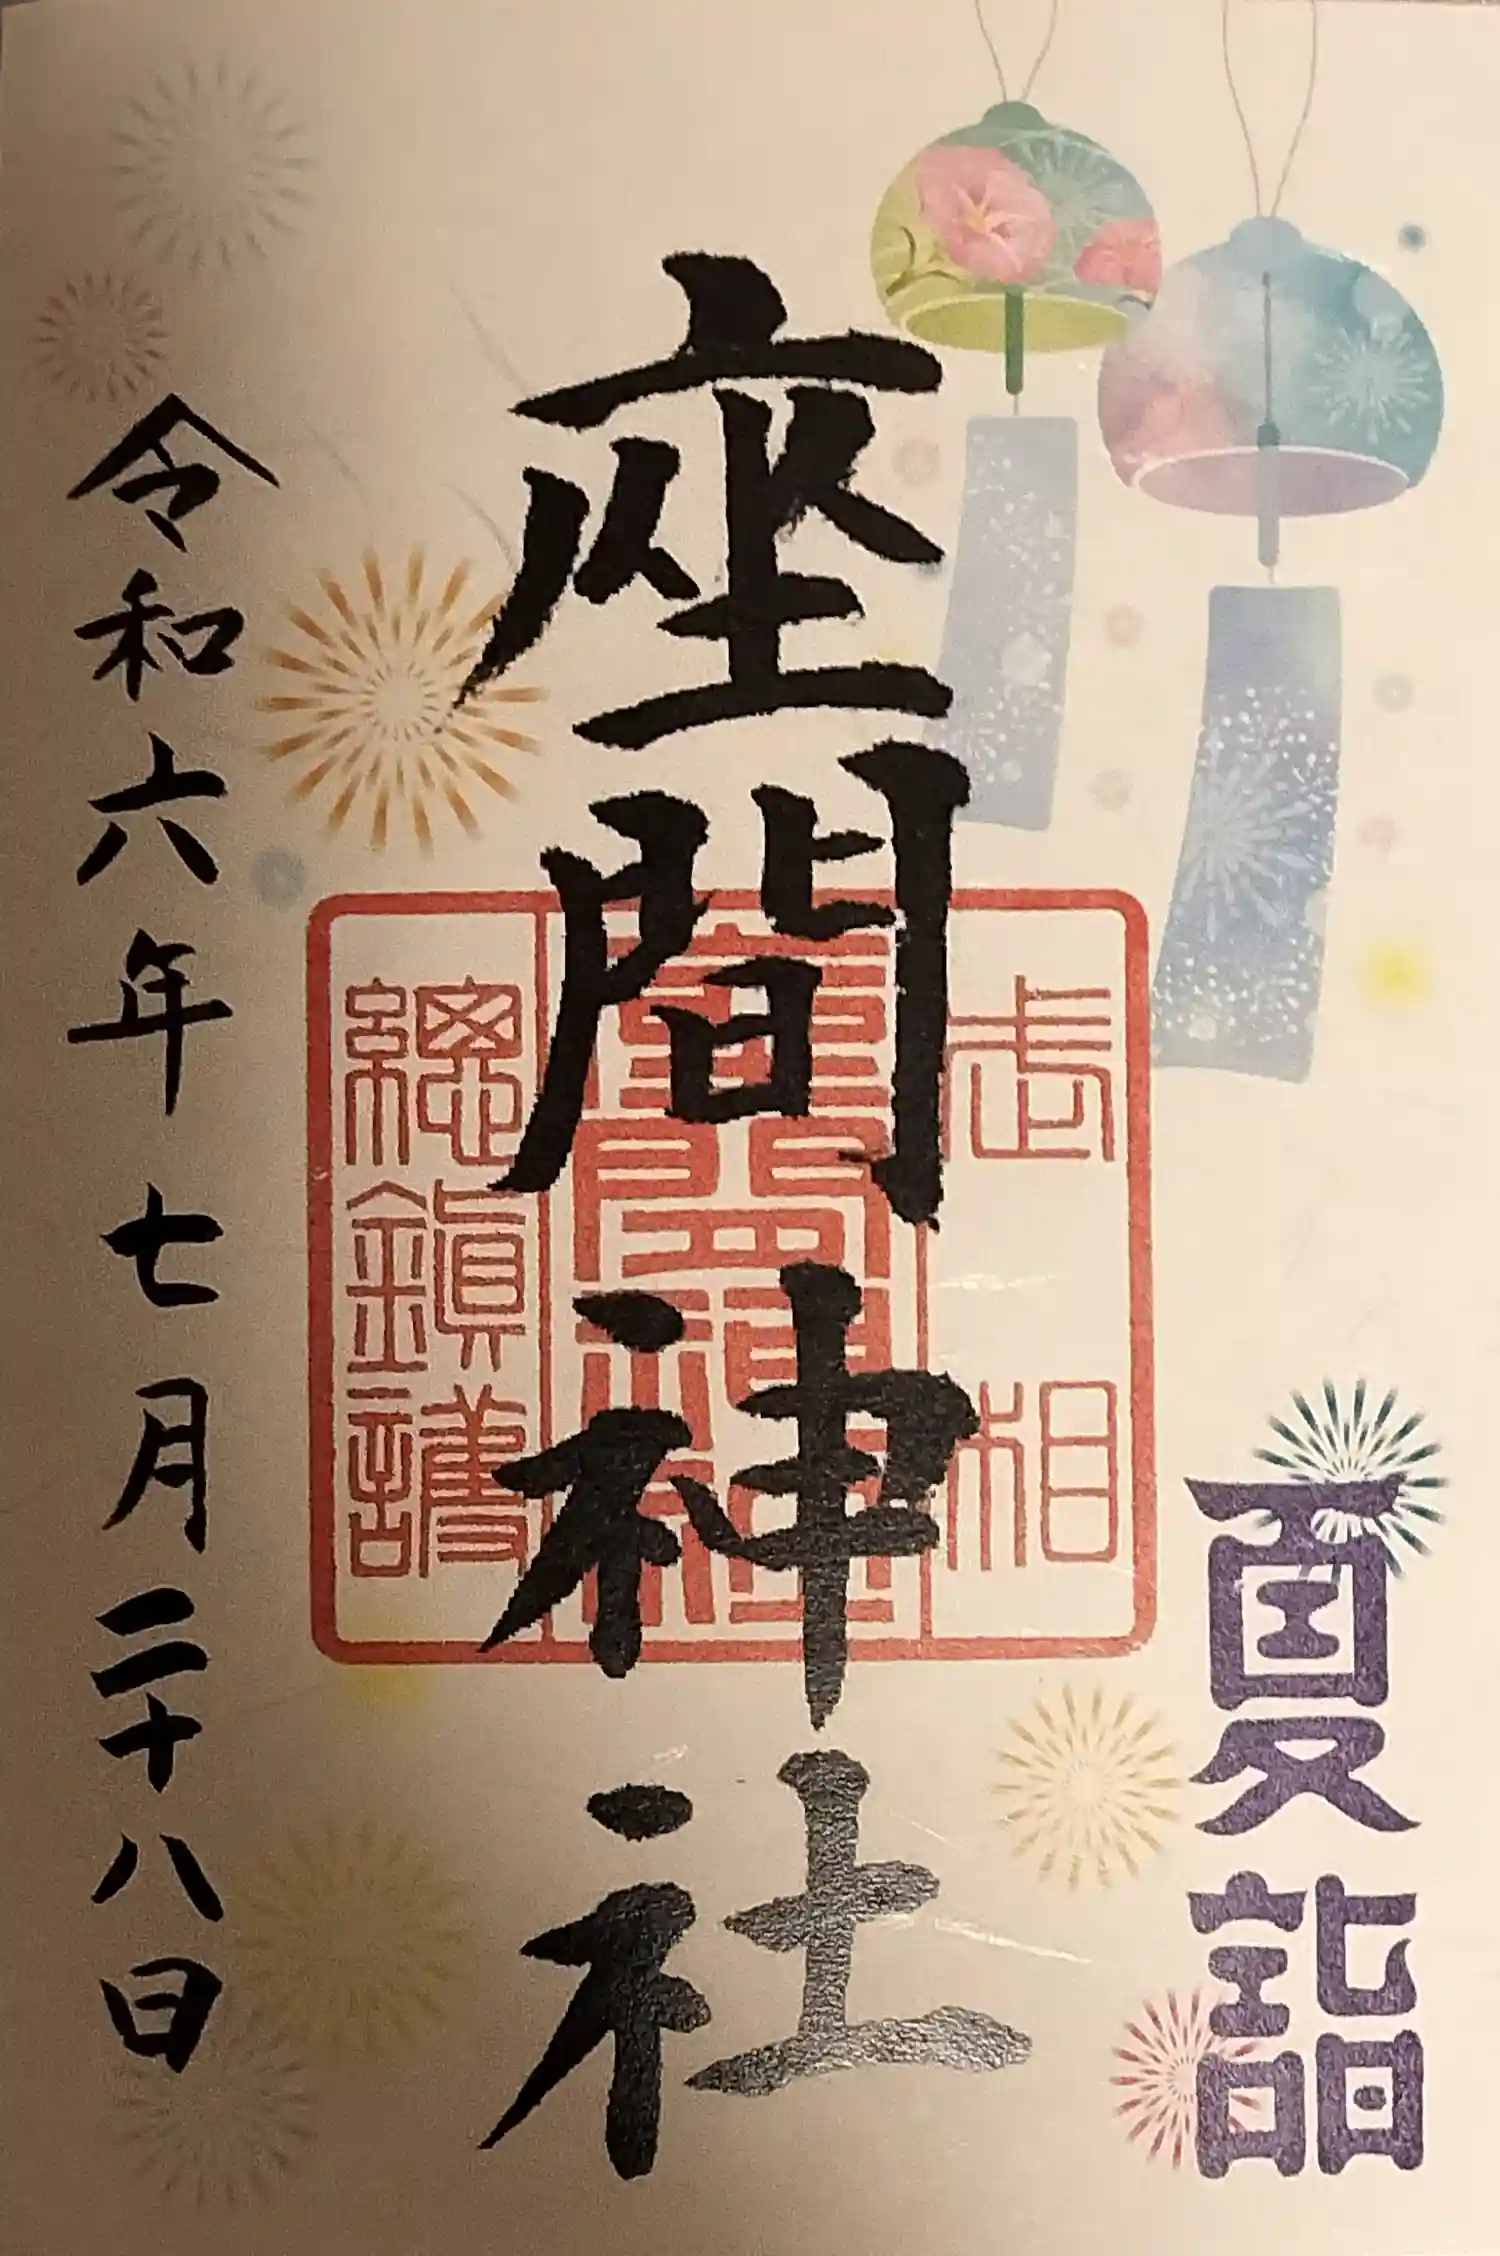 夏詣
武相
座間神社
座間神社
総鎮護
令和六年七月二十八日